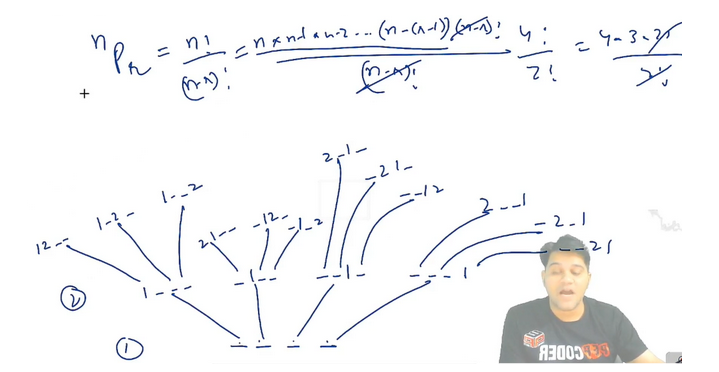 nPr = n! / (n-r)! = n × n-1 × n-2 --- (n-(r-1)) (n-r)! / (n-r)!
4! / 2! = 4 × 3 × 2! / 2!
2 - 1 -
- 2 1 -
- - 1 2
1 - - 2
1 - 2 -
1 2 - -
2 1 - -
- 1 2 -
- 1 - 2
2 - - 1
- 2 - 1
- - 2 1
1 - - -
- 1 - -
- - 1 -
- - - 1
②
① - - - -
PEPCODER